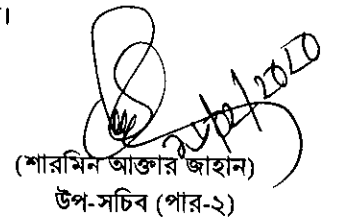 (শারমিন আক্তার জাহান)
উপ-সচিব (পার-২)